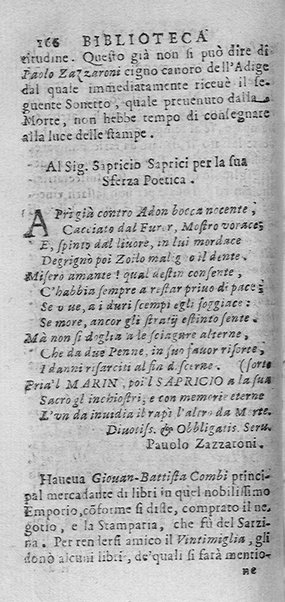 166 BIBLIOTECA
titudine. Questo già non si può dire di
Paolo Zazzaroni cigno canoro dell'Adige
dal quale immediatamente riceuè il se-
guente Sonetto, quale preuenuto dalla
Morte, non hebbe tempo di consegnare
alla luce delle stampe.
Al Sig. Sapricio Saprici per la sua
Sferza Poetica.
APrì già contro Adon bocca nocente,
Cacciato dal Furor, Mostro vorace;
E, spinto dal liuore, in lui mordace
Degrignò poi Zoilo maligno il dente.
Misero amante! qual destin consente,
C'habbia sempre a restar priuo di pace;
Se viue, a i duri scempi egli soggiace:
Se more, ancor gli stratij estinto sente.
Mà non si doglia a le sciagure alterne,
Che da due Penne, in suo fauor risorte,
I danni risarciti al fin discerne. (sorte
Pria'l MARIN, poi l SAPRICIO a la sua
Sacrò gl'inchiostri, e con memorie eterne
L'vn da inuidia il rapì l'altro da Morte.
Diuotiss. & Obbligatis. Seru.
Pauolo Zazzaroni.
Haueua Giouan-Battista Combi princi-
pal mercadante di libri in quel nobilissimo
Emporio, cõforme si disse, comprato il ne-
gotio, e la Stamparia, che fù del Sarzi-
na. Per rendersi amico il Vintimiglia, gli
donò alcuni libri, de'quali si farà mentio-
ne